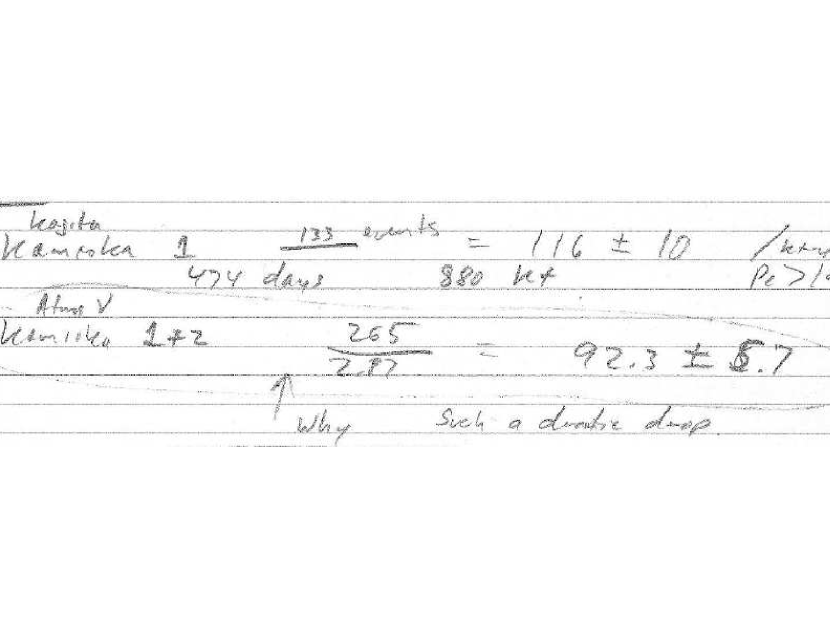 Kajita
Kamioka 1 133 events = 116 ± 10
474 days 880 kt Pe >
Atmos V
Kamioka 1+2 265 / 2.87 = 92.3 ± 5.7
↑ Why Such a drastic drop.